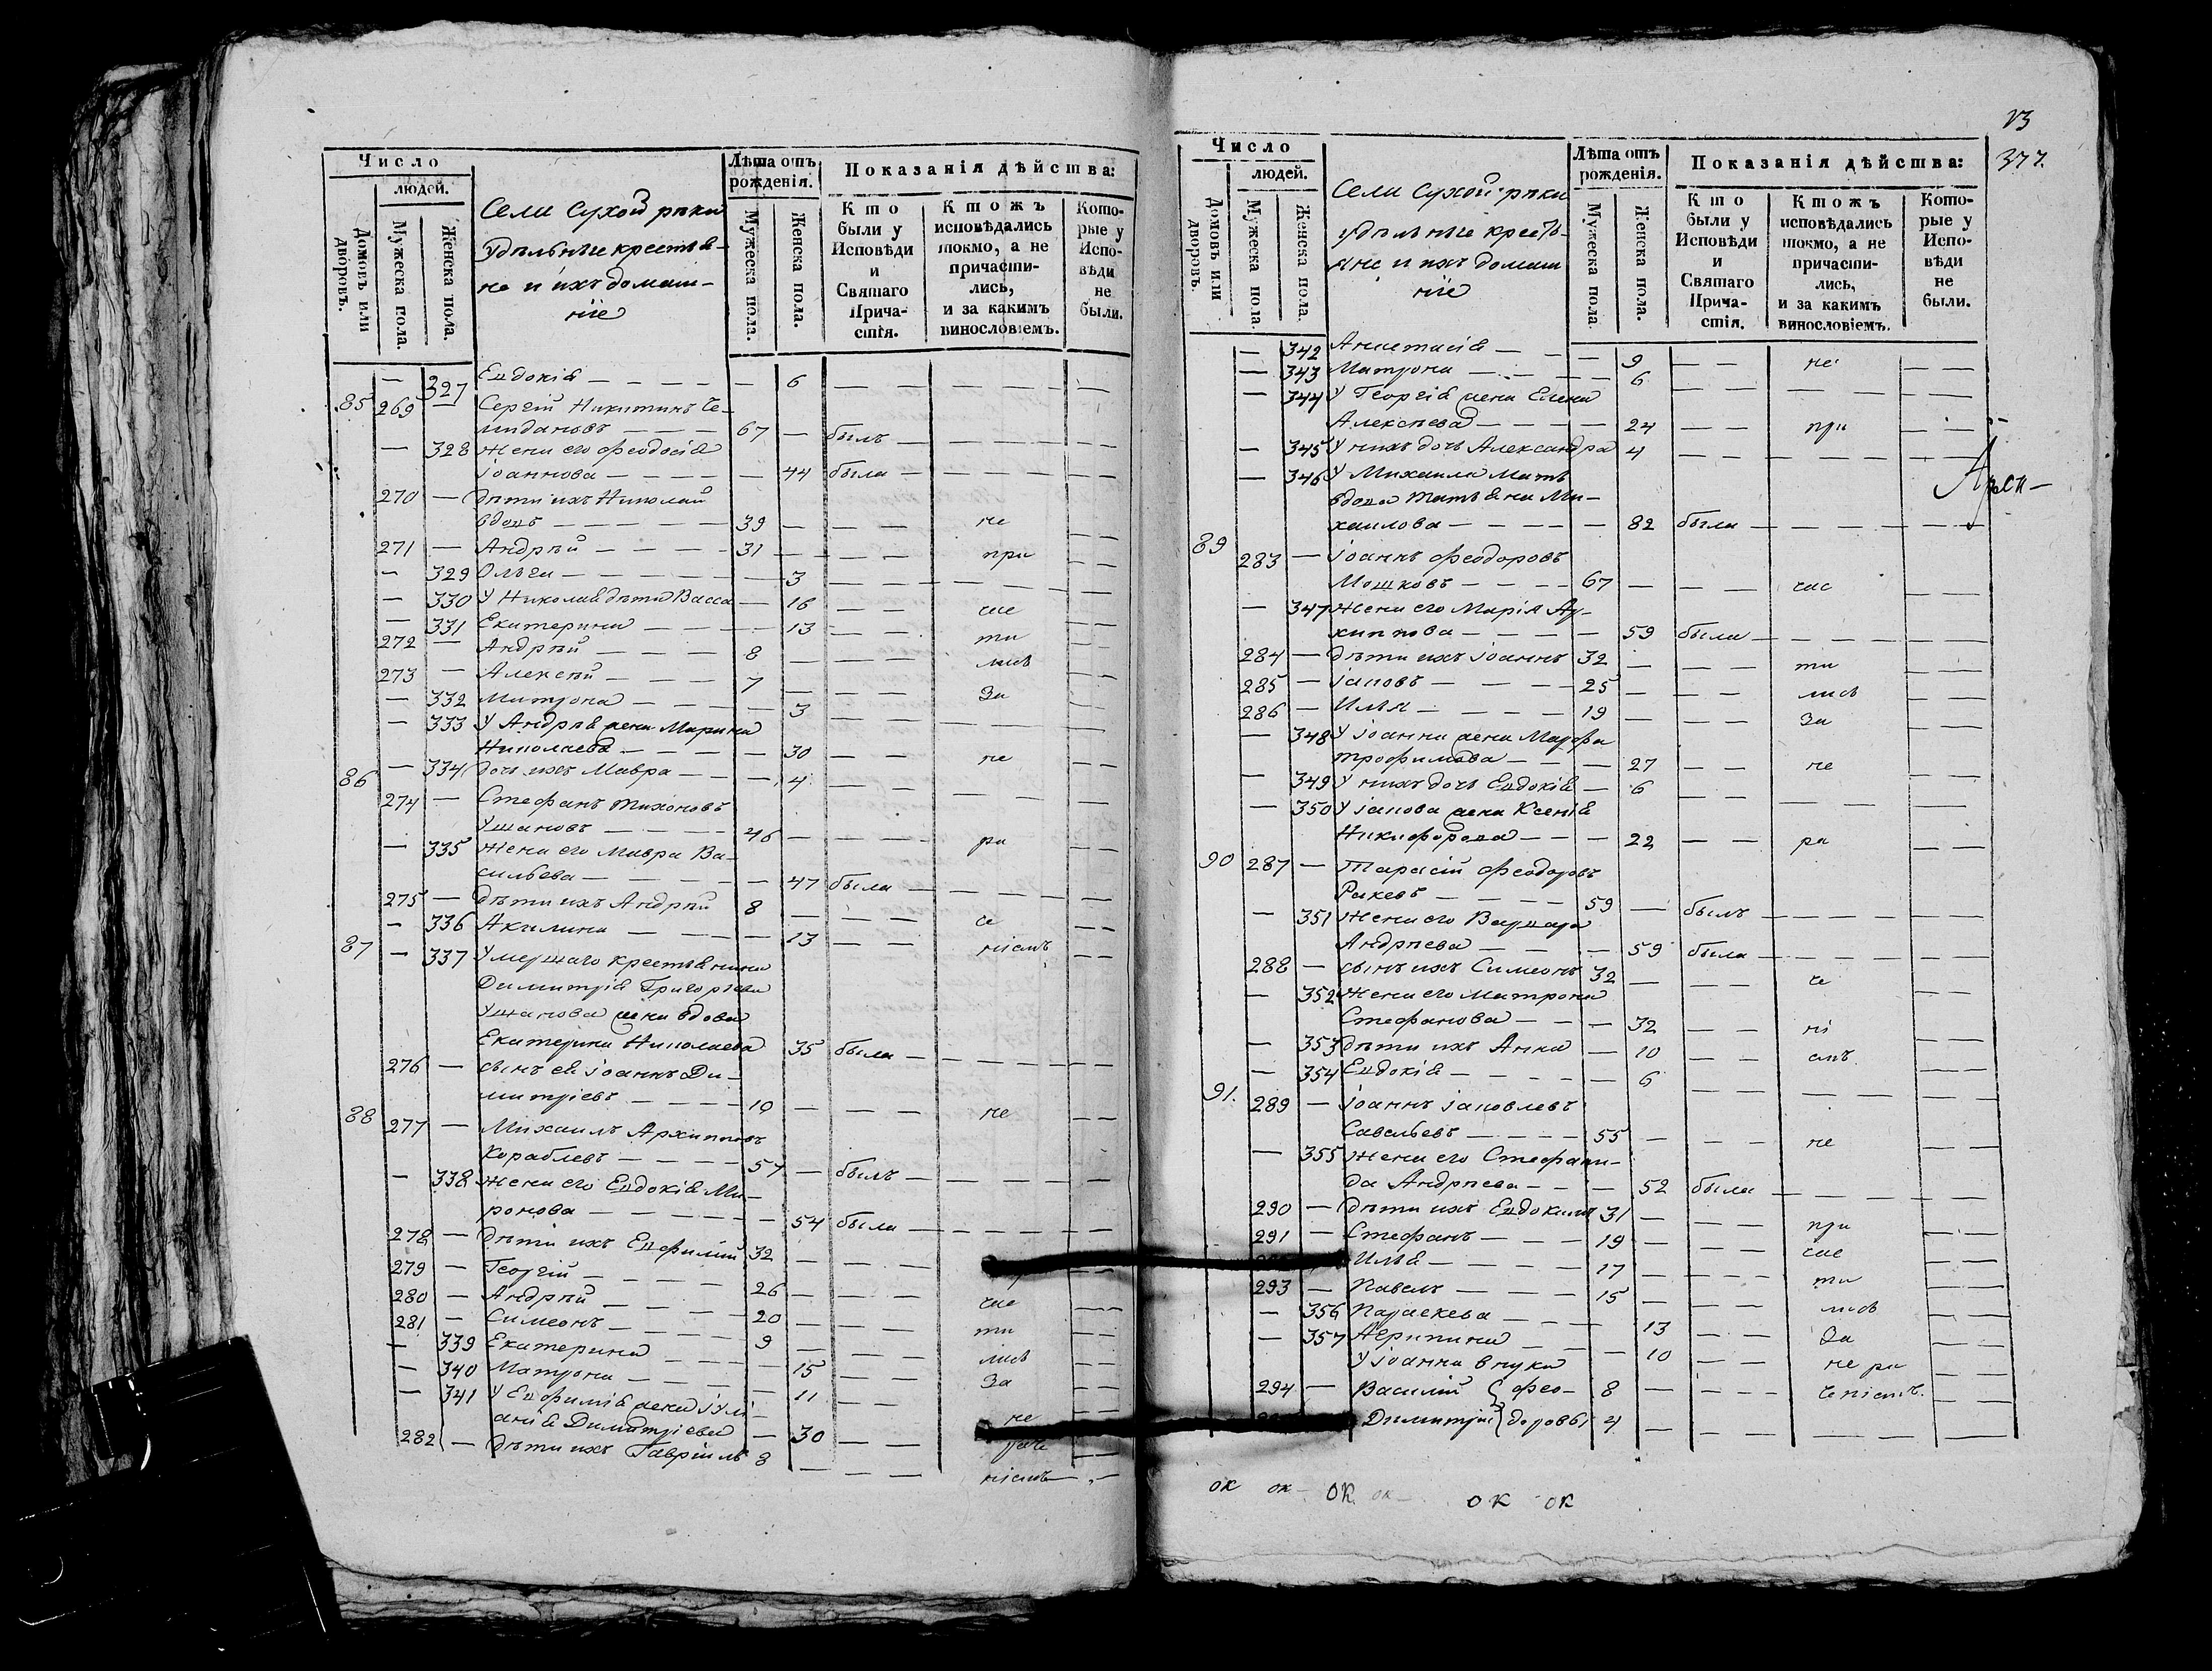 Число
людей.
Домовъ или дворовъ.
Мужеска пола.
Женска пола.
Села Сухой рѣки
удѣльные крестья-
не и ихъ домаш-
ніе
Лѣта отъ рожденія.
Мужеска пола.
Женска пола.
Показанія дѣйства:
Кто были у Исповѣди и Святаго Прича-стія.
Ктожъ исповѣдались токмо, а не причасти-лись, и за какимъ винословіемъ.
Кото-рые у Испо-вѣди не были.
— 327 Евдокія — — — — — 6 — — — — — —
85 269 — Сергій Никитинъ Че-
модановъ — — — 67 — былъ — — — — —
— 328 Жена его Феодосія
Іоаннова — — — — — 44 была — — — — —
270 — Дѣти ихъ Николай
вдовъ — — — — — 39 — — — не — —
271 — Андрѣй — — — — 31 — — — при — —
— 329 Ольга — — — — — — 3 — — — — — —
— 330 У Николая дѣти Васса — 16 — — час — —
— 331 Екатерина — — — — 13 — — ти — —
272 — Андрѣй — — — 8 — — — лись — —
273 — Алексѣй — — — 7 — — — За — —
— 332 Матрона — — — — 3 — — — — — —
— 333 У Андрѣя жена Марина
Николаева — — — — — 30 — — не — —
— 334 дочь ихъ Мавра — — — 4 — — — — — —
86 274 — Стефанъ Тихоновъ
Ушановъ — — — — 46 — — — ра — —
— 335 Жена его Мавра Ва-
сильева — — — — — 47 была — — — — —
275 — Дѣти ихъ Андрѣй 8 — — — че — —
— 336 Акилина — — — — 13 — — ніемъ — —
87 — 337 Умершаго крестьянина
Димитрія Григорьева
Ушанова жена вдова
Екатерина Николаева 35 была — — — — —
276 — сынъ ея Іоаннъ Ди-
митріевъ — — — — 10 — — — не — —
88 277 — Михаилъ Архипповъ
Кораблевъ — — — — 57 — былъ — — — — —
— 338 Жена его Евдокія Ми-
ронова — — — — — — 54 была — — — — —
278 — Дѣти ихъ Евфимій 32 — — — — —
279 — Георгій — — — — 26 — — — час — —
280 — Андрѣй — — — — 20 — — — ти — —
281 — Симеонъ — — — — 9 — — — лись — —
— 339 Екатерина — — — — 15 — — За — —
— 340 Матрона — — — — 11 — — не — —
— 341 У Евфимія жена Іулі-
анія Димитріева — 30 — — раче — —
282 — дѣти ихъ Гавріилъ 8 — — — ніемъ — —
73
377.
Число
людей.
Домовъ или дворовъ.
Мужеска пола.
Женска пола.
Села Сухой рѣки
удѣльные кресть-
яне и ихъ домаш
ніе
Лѣта отъ рожденія.
Мужеска пола.
Женска пола.
Показанія дѣйства:
Кто были у Исповѣди и Святаго Прича-стія.
Ктожъ исповѣдались токмо, а не причасти-лись, и за какимъ винословіемъ.
Кото-рые у Испо-вѣди не были.
— 342 Анастасія — — — 9 — — не — —
— 343 Матрона — — — — 6 — — — — — —
— 344 У Георгія жена Елена
Алексѣева — — — — 24 — — при — —
— 345 У нихъ дочь Александра 4 — — — — — —
— 346 У Михаила мать
вдова Татьяна Ми-
хаилова — — — — — 82 была — — — — —
89 283 — Іоаннъ Феодоровъ
Мошковъ — — — — 67 — — — час — —
— 347 Жена его Марія Ар-
хиппова — — — — 59 была — — — — —
284 — дѣти ихъ Іоаннъ 32 — — — ти — —
285 — Іаковъ — — — — 25 — — — лись — —
286 — Илья — — — — 19 — — — За — —
— 348 У Іоанна жена Марфа
Трофимова — — — 27 — — не — —
— 349 У нихъ дочь Евдокія — 6 — — — — — —
— 350 У Іакова жена Ксенія
Никифорова — — — 22 — — ра — —
90 287 — Тарасій Феодоровъ
Ракевъ — — — — 59 — былъ — — — — —
— 351 Жена его Варвара
Андрѣева — — — 59 была — — — — —
288 — сынъ ихъ Симеонъ 32 — — — че — —
— 352 Жена его Матрона
Стефанова — — — 32 — — ні — —
— 353 Дѣти ихъ Анна — 10 — — емъ — —
— 354 Евдокія — — — — — 6 — — — — — —
91. 289 — Іоаннъ Іаковлевъ
Савельевъ — — — — 55 — — — не — —
— 355 Жена его Стефани-
да Андрѣева — — — 52 была — — — — —
290 — Дѣти ихъ Евдокимъ 31 — — — при — —
291 — Стефанъ — — — 19 — — — час — —
Илья — — — — 17 — — — ти — —
293 — Павелъ — — — — 15 — — — лись — —
— 356 Параскева — — — 13 — — За — —
— 357 Агрипина — — — — 10 — — не ра — —
У Іоанна внуки
294 — Василій } Фео- 8 — — — ченіемъ.
Димитрій } доровы 4 — — — — — —
ок ок ок ок ок ок